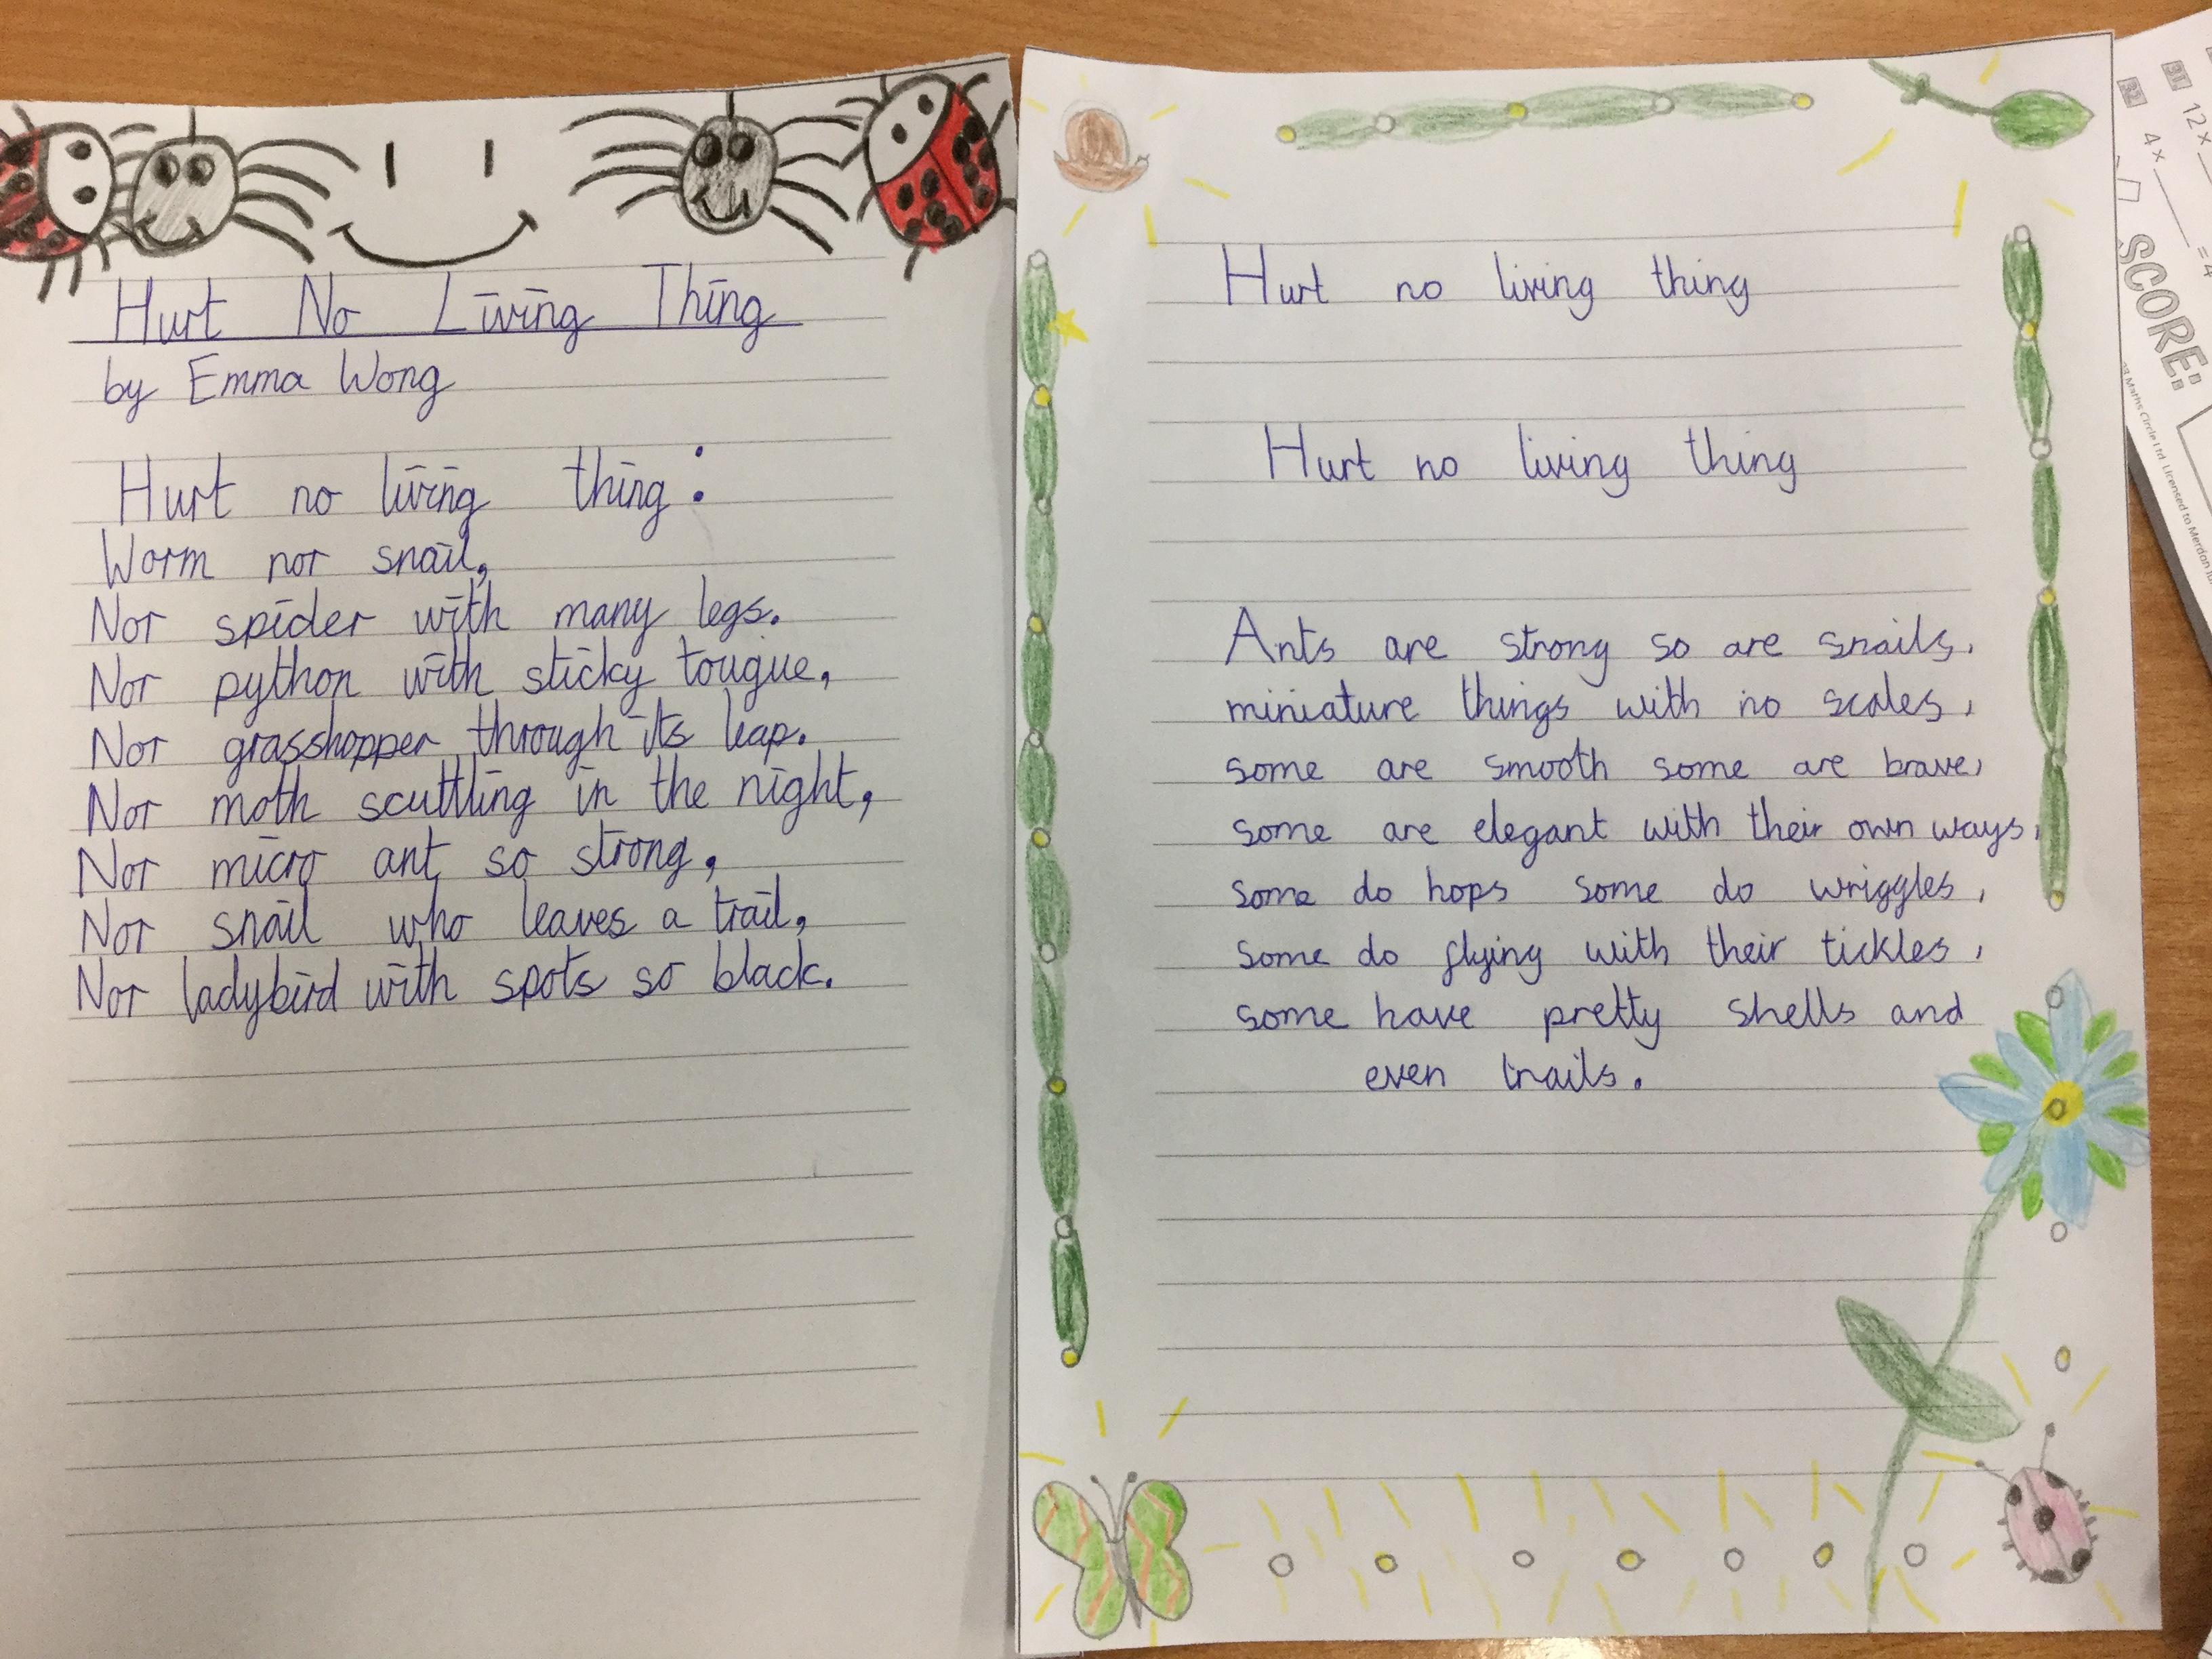 Hurt No Living Thing
by Emma Wong
Hurt no living thing:
Worm nor snail,
Nor spider with many legs.
Nor python with sticky tougue,
Nor grasshopper through its leap.
Nor moth scuttling in the night,
Nor micro ant so strong,
Nor snail who leaves a trail,
Nor ladybird with spots so black.
Hurt no living thing
Hurt no living thing
Ants are strong so are snails,
miniature things with no scales,
some are smooth some are brave,
some are elegant with their own ways,
some do hops some do wriggles,
some do flying with their tickles,
some have pretty shells and
even trails.
31 12 x
32 4 x = 4
SCORE:
Maths Circle Ltd Licensed to Merdon